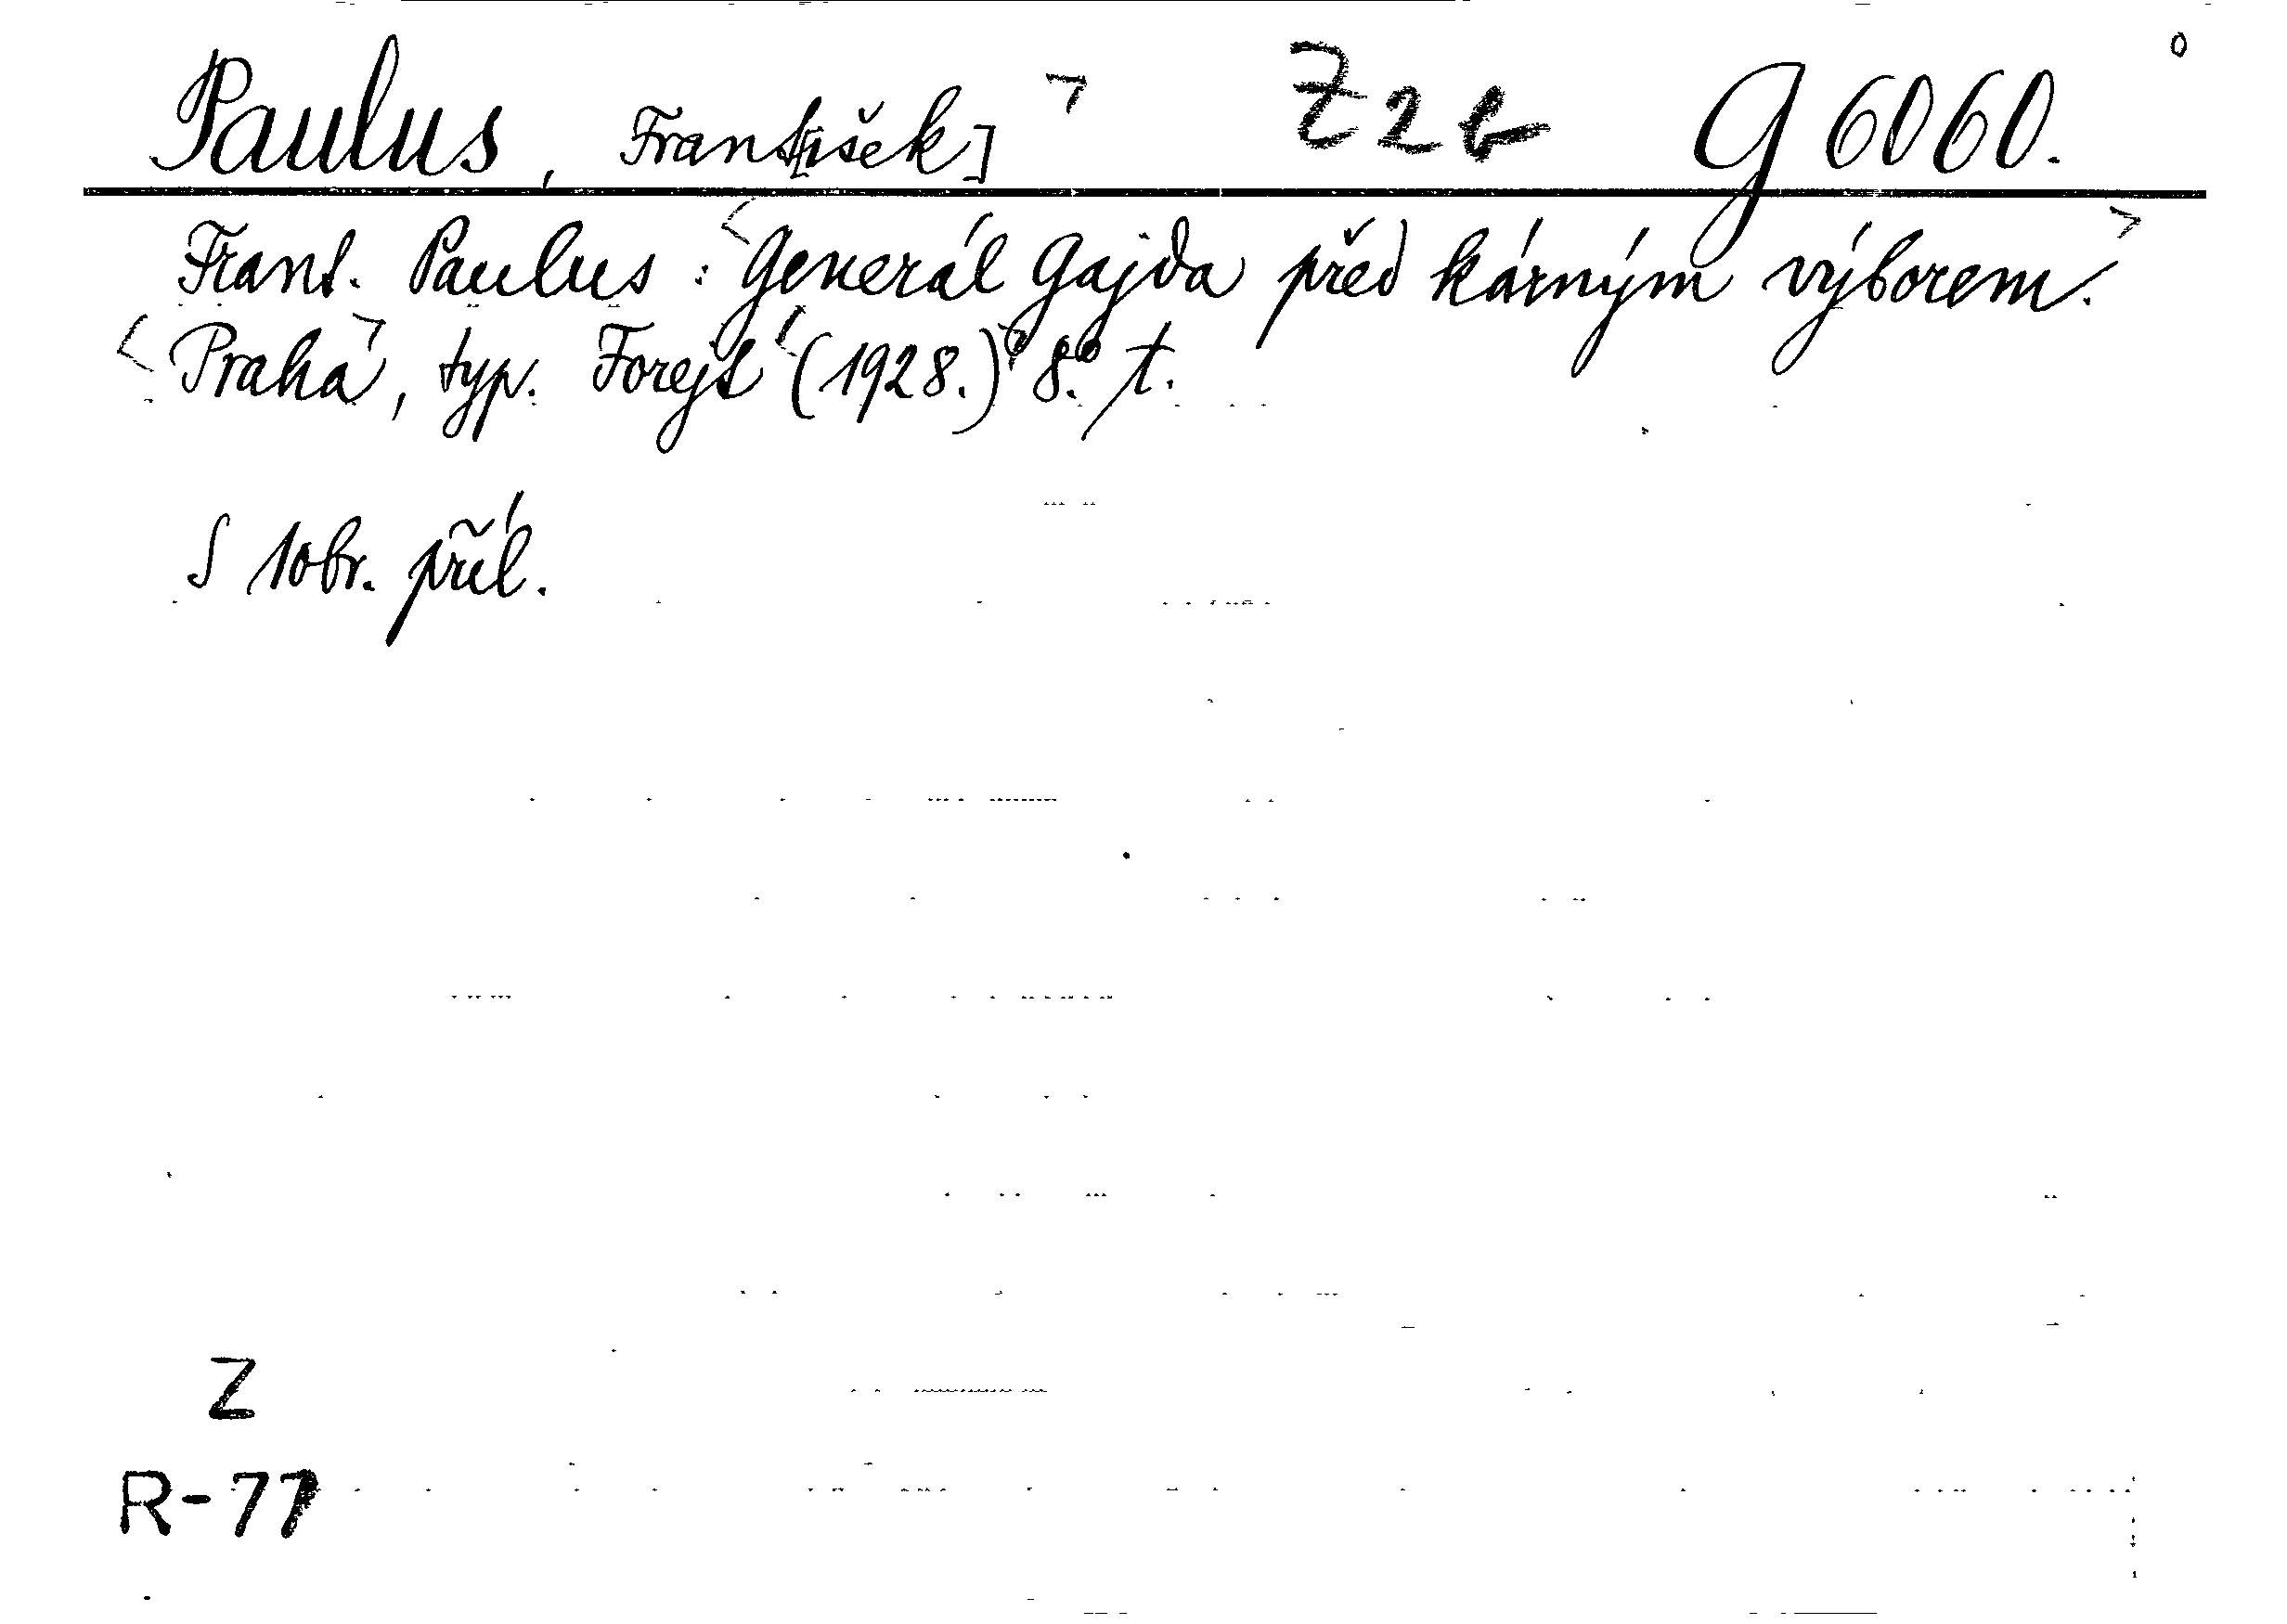 Paulus, Frant[išek] Z2b G 6060.
Frant. Paulus: Generál Gajda před kárným výborem.
Praha, typ. Forejt (1928.) 8.° t.
S 1 obr. příl.
Z
R-77